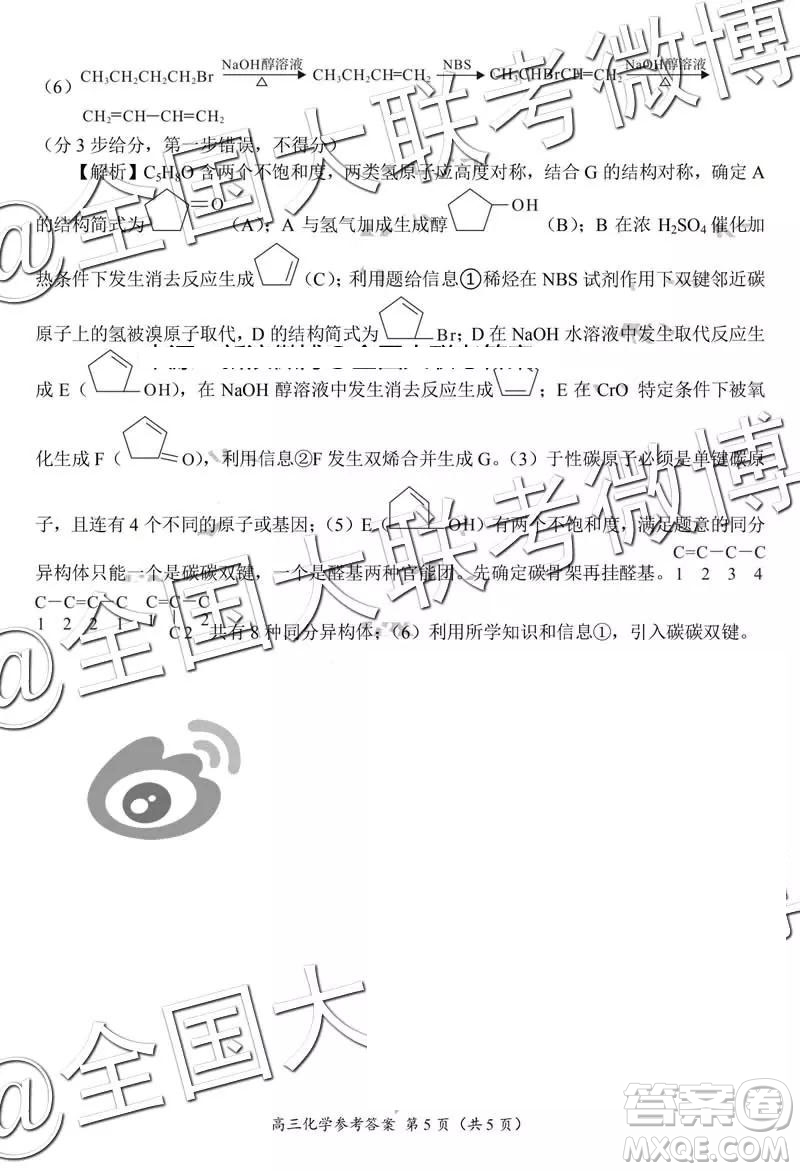 (6) CH₃CH₂CH₂CH₂Br NaOH醇溶液 △ CH₃CH₂CH=CH₂ NBS CH₃CHBrCH=CH₂ NaOH醇溶液 △
CH₂=CH-CH=CH₂
(分 3 步给分，第一步错误，不得分)
【解析】C₅H₈O 含两个不饱和度，两类氢原子应高度对称，结合 G 的结构对称，确定 A
的结构简式为 =O (A)；A 与氢气加成生成醇 OH (B)；B 在浓 H₂SO₄ 催化加
热条件下发生消去反应生成 (C)；利用题给信息①稀烃在 NBS 试剂作用下双键邻近碳
原子上的氢被溴原子取代，D 的结构简式为 Br；D 在 NaOH 水溶液中发生取代反应生
成 E ( OH)，在 NaOH 醇溶液中发生消去反应生成 ；E 在 CrO 特定条件下被氧
化生成 F ( =O)，利用信息②F 发生双烯合并生成 G。(3) 于性碳原子必须是单键碳原
子，且连有 4 个不同的原子或基团；(5) E ( OH) 有两个不饱和度，满足题意的同分
异构体只能一个是碳碳双键，一个是醛基两种官能团。先确定碳骨架再挂醛基。 C=C-C-C
1 2 3 4
C-C=C-C C=C-C
1 2 2 1 1 1 2
C 2 共有 8 种同分异构体；(6) 利用所学知识和信息①，引入碳碳双键。
@全国大联考微博
@全国大联考微博
@全国大联考微博
高三化学参考答案 第 5 页（共 5 页）
答案圈
MXQE.COM